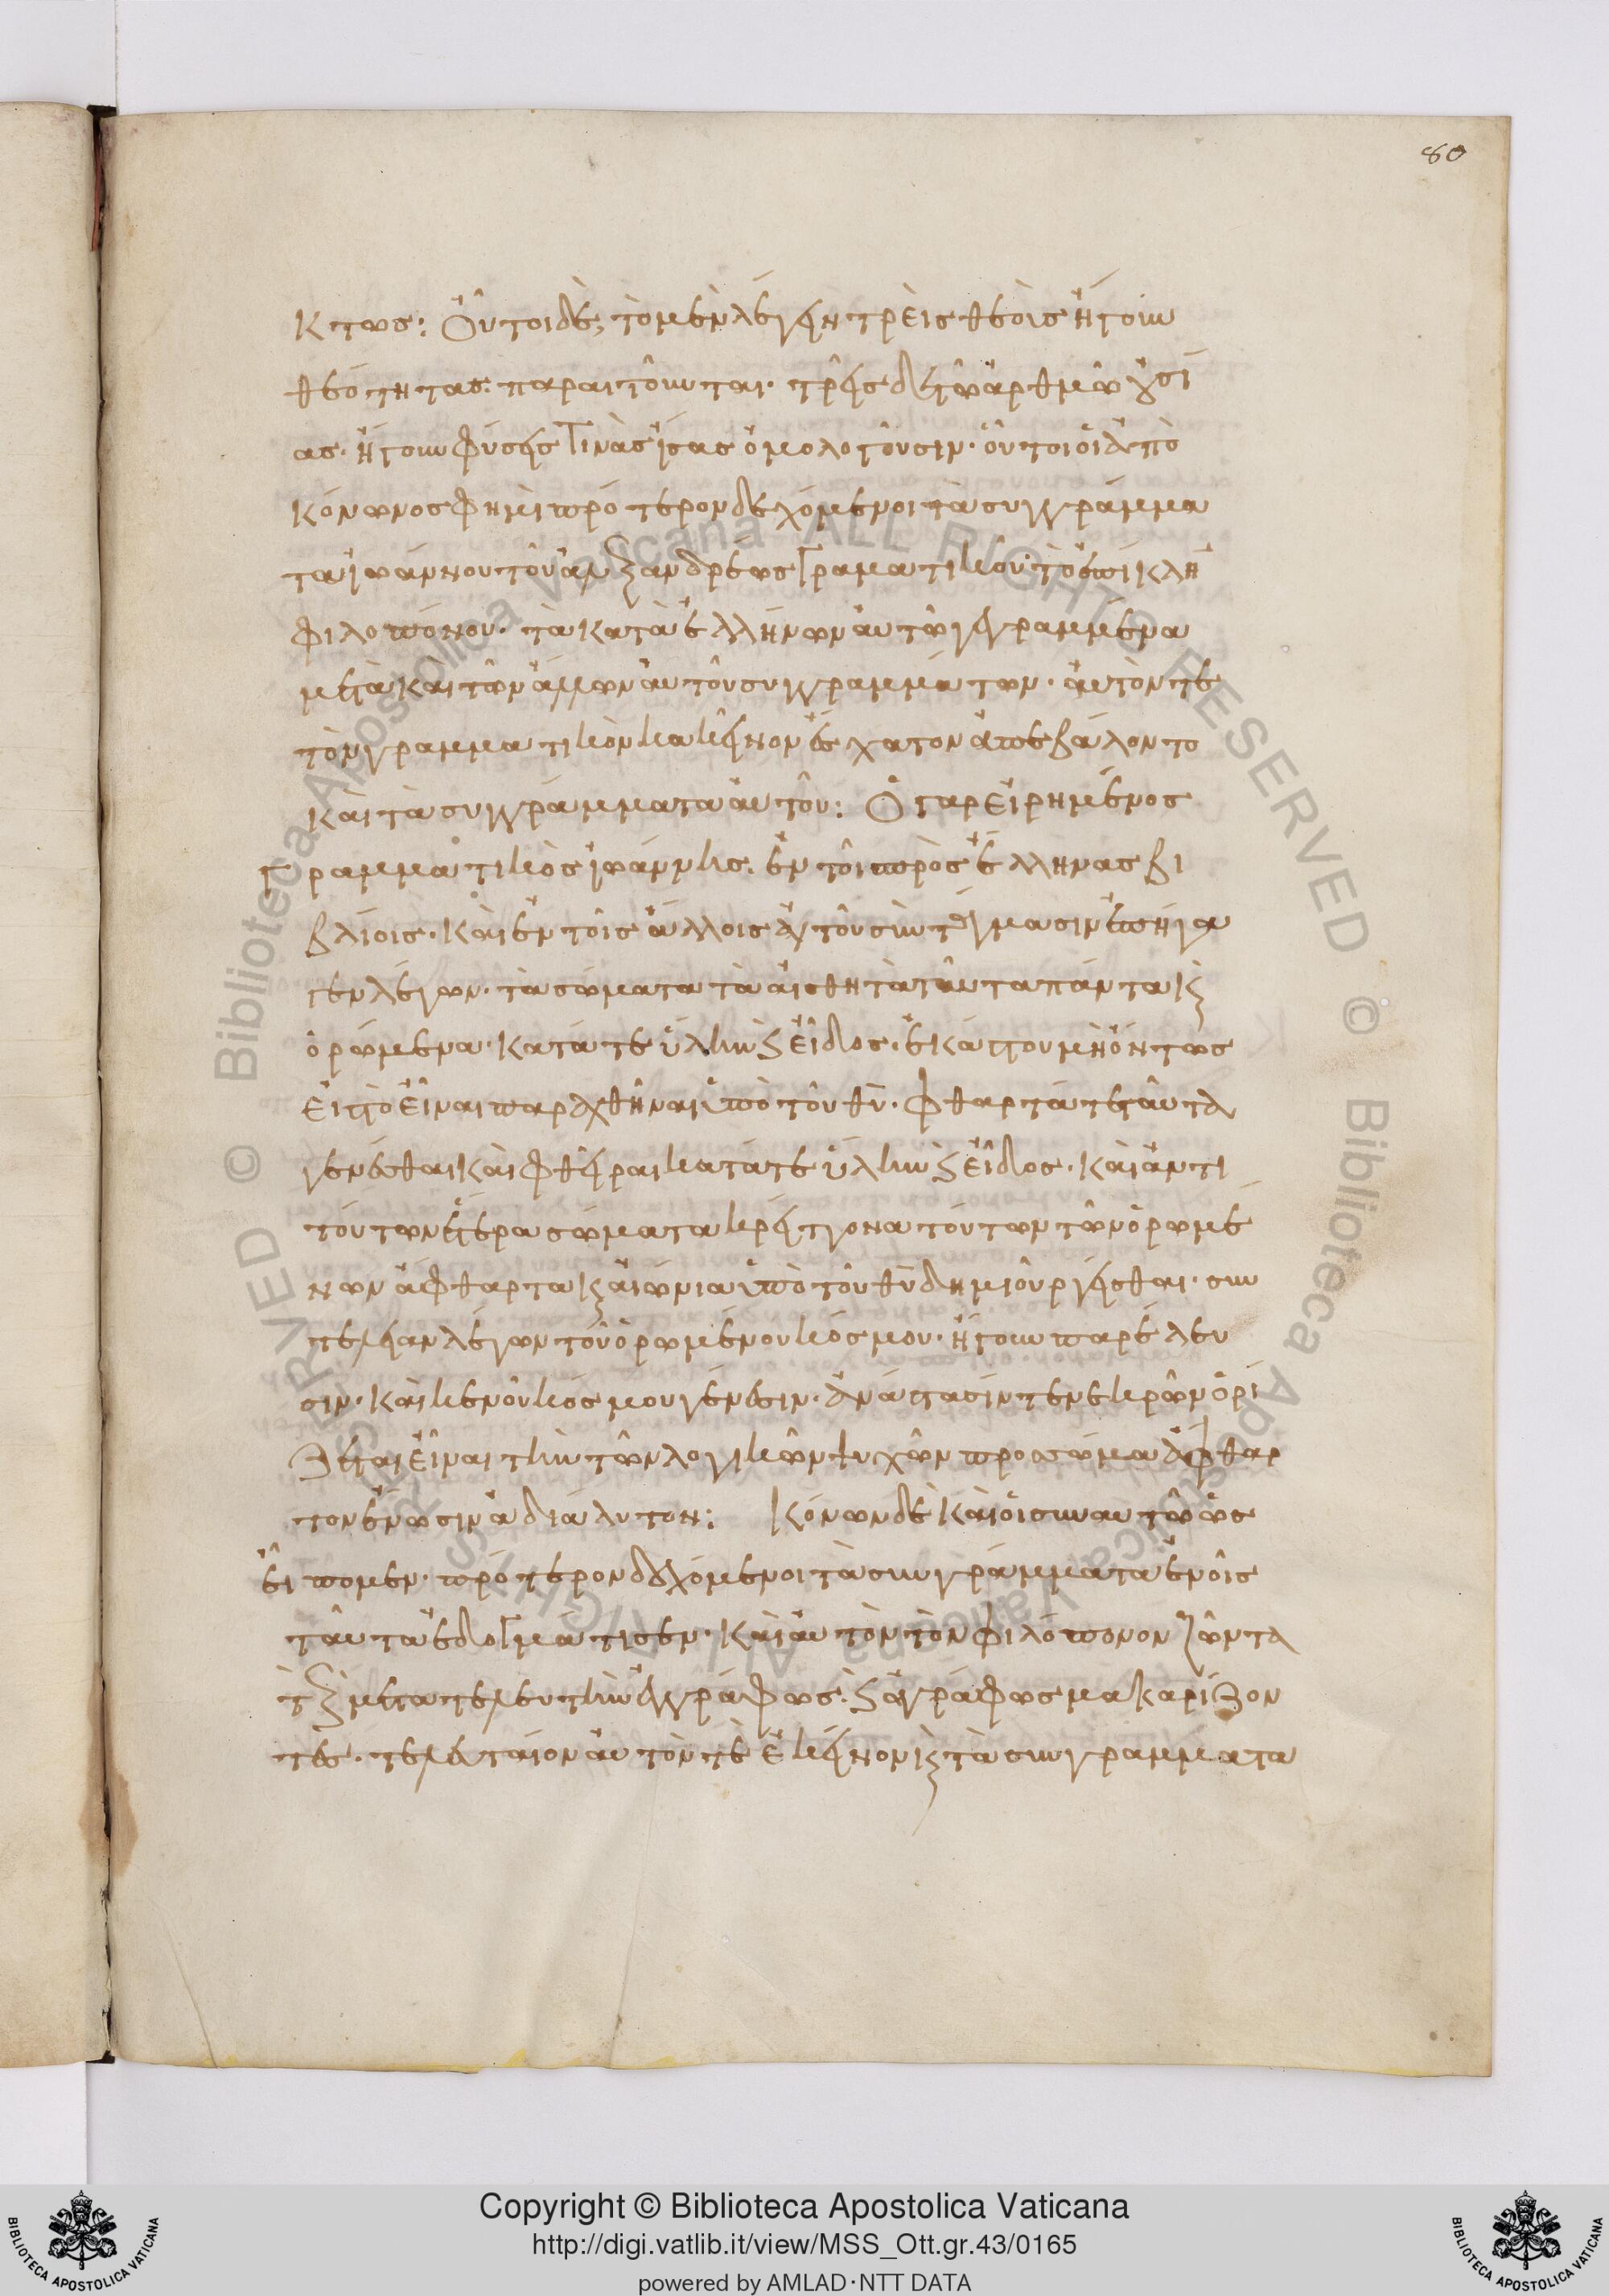 80
κτως: Οὗτοι δὲ, τὸ μὲν λέγειν τρεῖς θεοὺς ἤτουν
θεότητας. παραιτοῦνται. τρεῖς δὲ τῷ ἀριθμῷ οὐσί
ας. ἤτουν φύσεις τινὰς ἴσας ὁμολογοῦσιν. οὗτοι οἱ ἀπὸ
Κόνωνος φημὶ πρότερον δεχόμενοι τὰ συγγράμμα
τα ἰωάννου τοῦ ἀλεξανδρέως γραματικοῦ. τὸ ἐπίκλη
φιλοπόνου. τὰ κατὰ ἑλλήνων αὐτῷ γεγραμμένα
μετὰ καὶ τῶν ἄλλων αὐτοῦ συγγραμμάτων. αὐτόν τε
τὸν γραμματικὸν κακεῖνον ἔσχατον ἀπεβάλοντο
καὶ τὰ συγγράμματα αὐτοῦ: Ὁ γὰρ εἰρημένος
Γραμματικὸς ἰωάννης. ἐν τοῖ πρὸς ἕλληνας βι
βλίοις. καὶ ἐν τοῖς ἄλλοις αὐτοῦ συντάγμασιν ἐπήγα
γεν λέγων. τὰ σώματα τὰ αἰσθητὰ ταῦτα πάντα καὶ
ὁρώμενα. κατά τε ὕλην καὶ εἶδος. ἐκ τοῦ μὴ ὄντως
εἰς τὸ εἶναι παραχθῆναι ὑπὸ τοῦ θυ. φθαρτά τε ταῦτα
γενέσθαι καὶ φθεῖραι κατά τε ὕλην καὶ εἶδος. καὶ ἀντὶ
τούτων ἕτερα σώματα κρείττονα τούτων τῶν ὁρωμέ
νων ἄφθαρτα καὶ αἰώνια ὑπὸ τοῦ θυ δημιουργεῖσθαι. συν
τέλειαν λέγων τοῦ ὁρωμένου κόσμου. ἤτουν παρέλευ
σιν. καὶ κενοῦ κόσμου γένεσιν. ἀνάστασίν τε νεκρῶν ὁρί
ζεται εἶναι τὴν τῶν λογικῶν ψυχῶν πρὸς σῶμα ἄφθαρ
τον ἕνωσιν ἀδιάλυτον: Κόνων δὲ καὶ οἱ σὺν αὐτῷ ὡς
εἴπομεν. πρότερον δεχόμενοι τὰ συγγράμματα ἐν οἷς
ταῦτα ἐδογμάτισεν. καὶ αὐτὸν τὸν φιλόπονον ζῶντα
τε καὶ μετὰ τελευτὴν ἐγγράφως. καὶ ἀγράφως μακαρίζον
τες. τελευταῖον αὐτόν τε ἐκεῖνον καὶ τὰ συγγράμματα
Copyright © Biblioteca Apostolica Vaticana
http://digi.vatlib.it/view/MSS_Ott.gr.43/0165
powered by AMLAD·NTT DATA